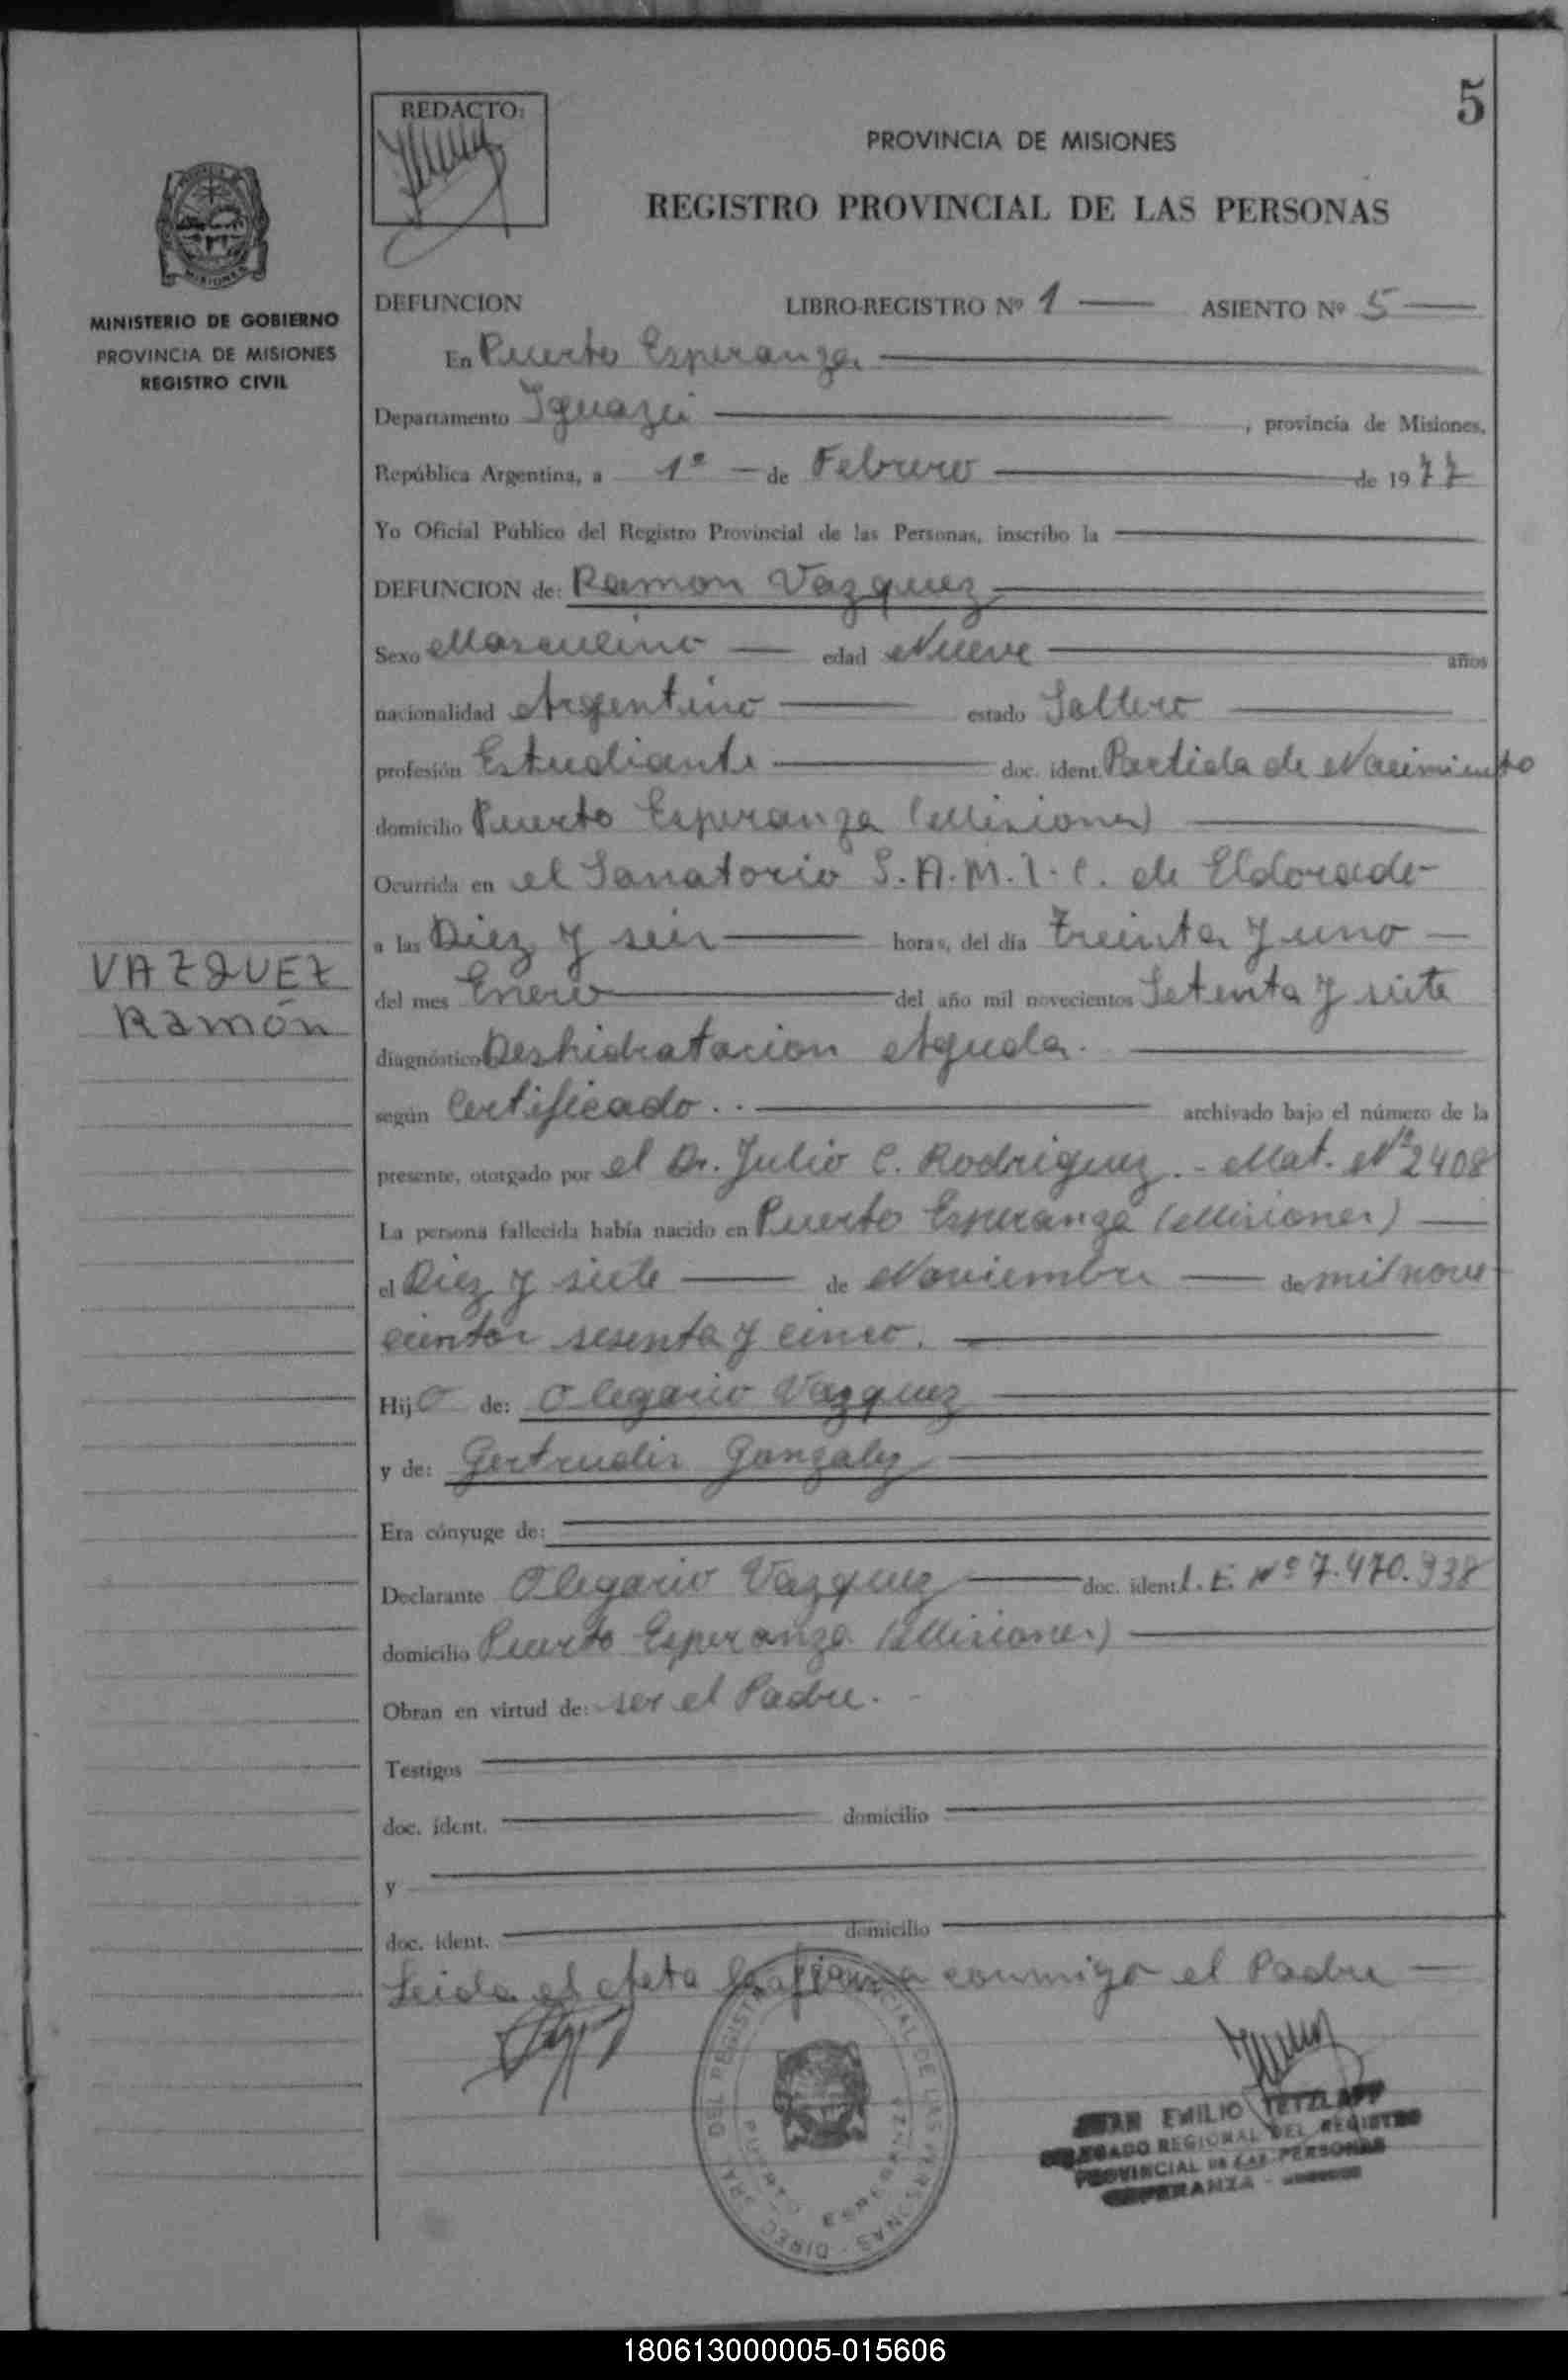 5
REDACTO:
PROVINCIA DE MISIONES
REGISTRO PROVINCIAL DE LAS PERSONAS
MISIONES
MINISTERIO DE GOBIERNO
PROVINCIA DE MISIONES
REGISTRO CIVIL
DEFUNCION LIBRO-REGISTRO Nº 1 ASIENTO Nº 5
En Puerto Esperanza
Departamento Iguazú, provincia de Misiones,
República Argentina, a 1º de Febrero de 1977
Yo Oficial Público del Registro Provincial de las Personas, inscribo la
DEFUNCION de: Ramon Vazquez
Sexo Masculino edad Nueve años
nacionalidad Argentino estado Soltero
profesión Estudiante doc. ident. Partida de Nacimiento
domicilio Puerto Esperanza (Misiones)
Ocurrida en el Sanatorio S.A.M.I.C. de Eldorado
a las Diez y seis horas, del día treinta y uno
VAZQUEZ
Ramón
del mes Enero del año mil novecientos Setenta y siete
diagnóstico Deshidratacion Aguda.
según Certificado.. archivado bajo el número de la
presente, otorgado por el Dr. Julio C. Rodriguez.- Mat. Nº 2408
La persona fallecida había nacido en Puerto Esperanza (Misiones)
el Diez y siete de Noviembre de mil nove
cientos sesenta y cinco.
Hijo de: Olegario Vazquez
y de: Gertrudis Gonzalez
Era cónyuge de:
Declarante Olegario Vazquez doc. ident. L.E. Nº 7.470.938
domicilio Puerto Esperanza (Misiones)
Obran en virtud de: ser el Padre.-
Testigos
doc. ident. domicilio
y
doc. ident. domicilio
Leida el Acta la firma conmigo el Padre
DIREC. GRAL. DEL REGISTRO PROVINCIAL DE LAS PERSONAS
PUERTO ESPERANZA
JUAN EMILIO TETZLAFF
DELEGADO REGIONAL DEL REGISTRO
PROVINCIAL DE LAS PERSONAS
ESPERANZA -
180613000005-015606